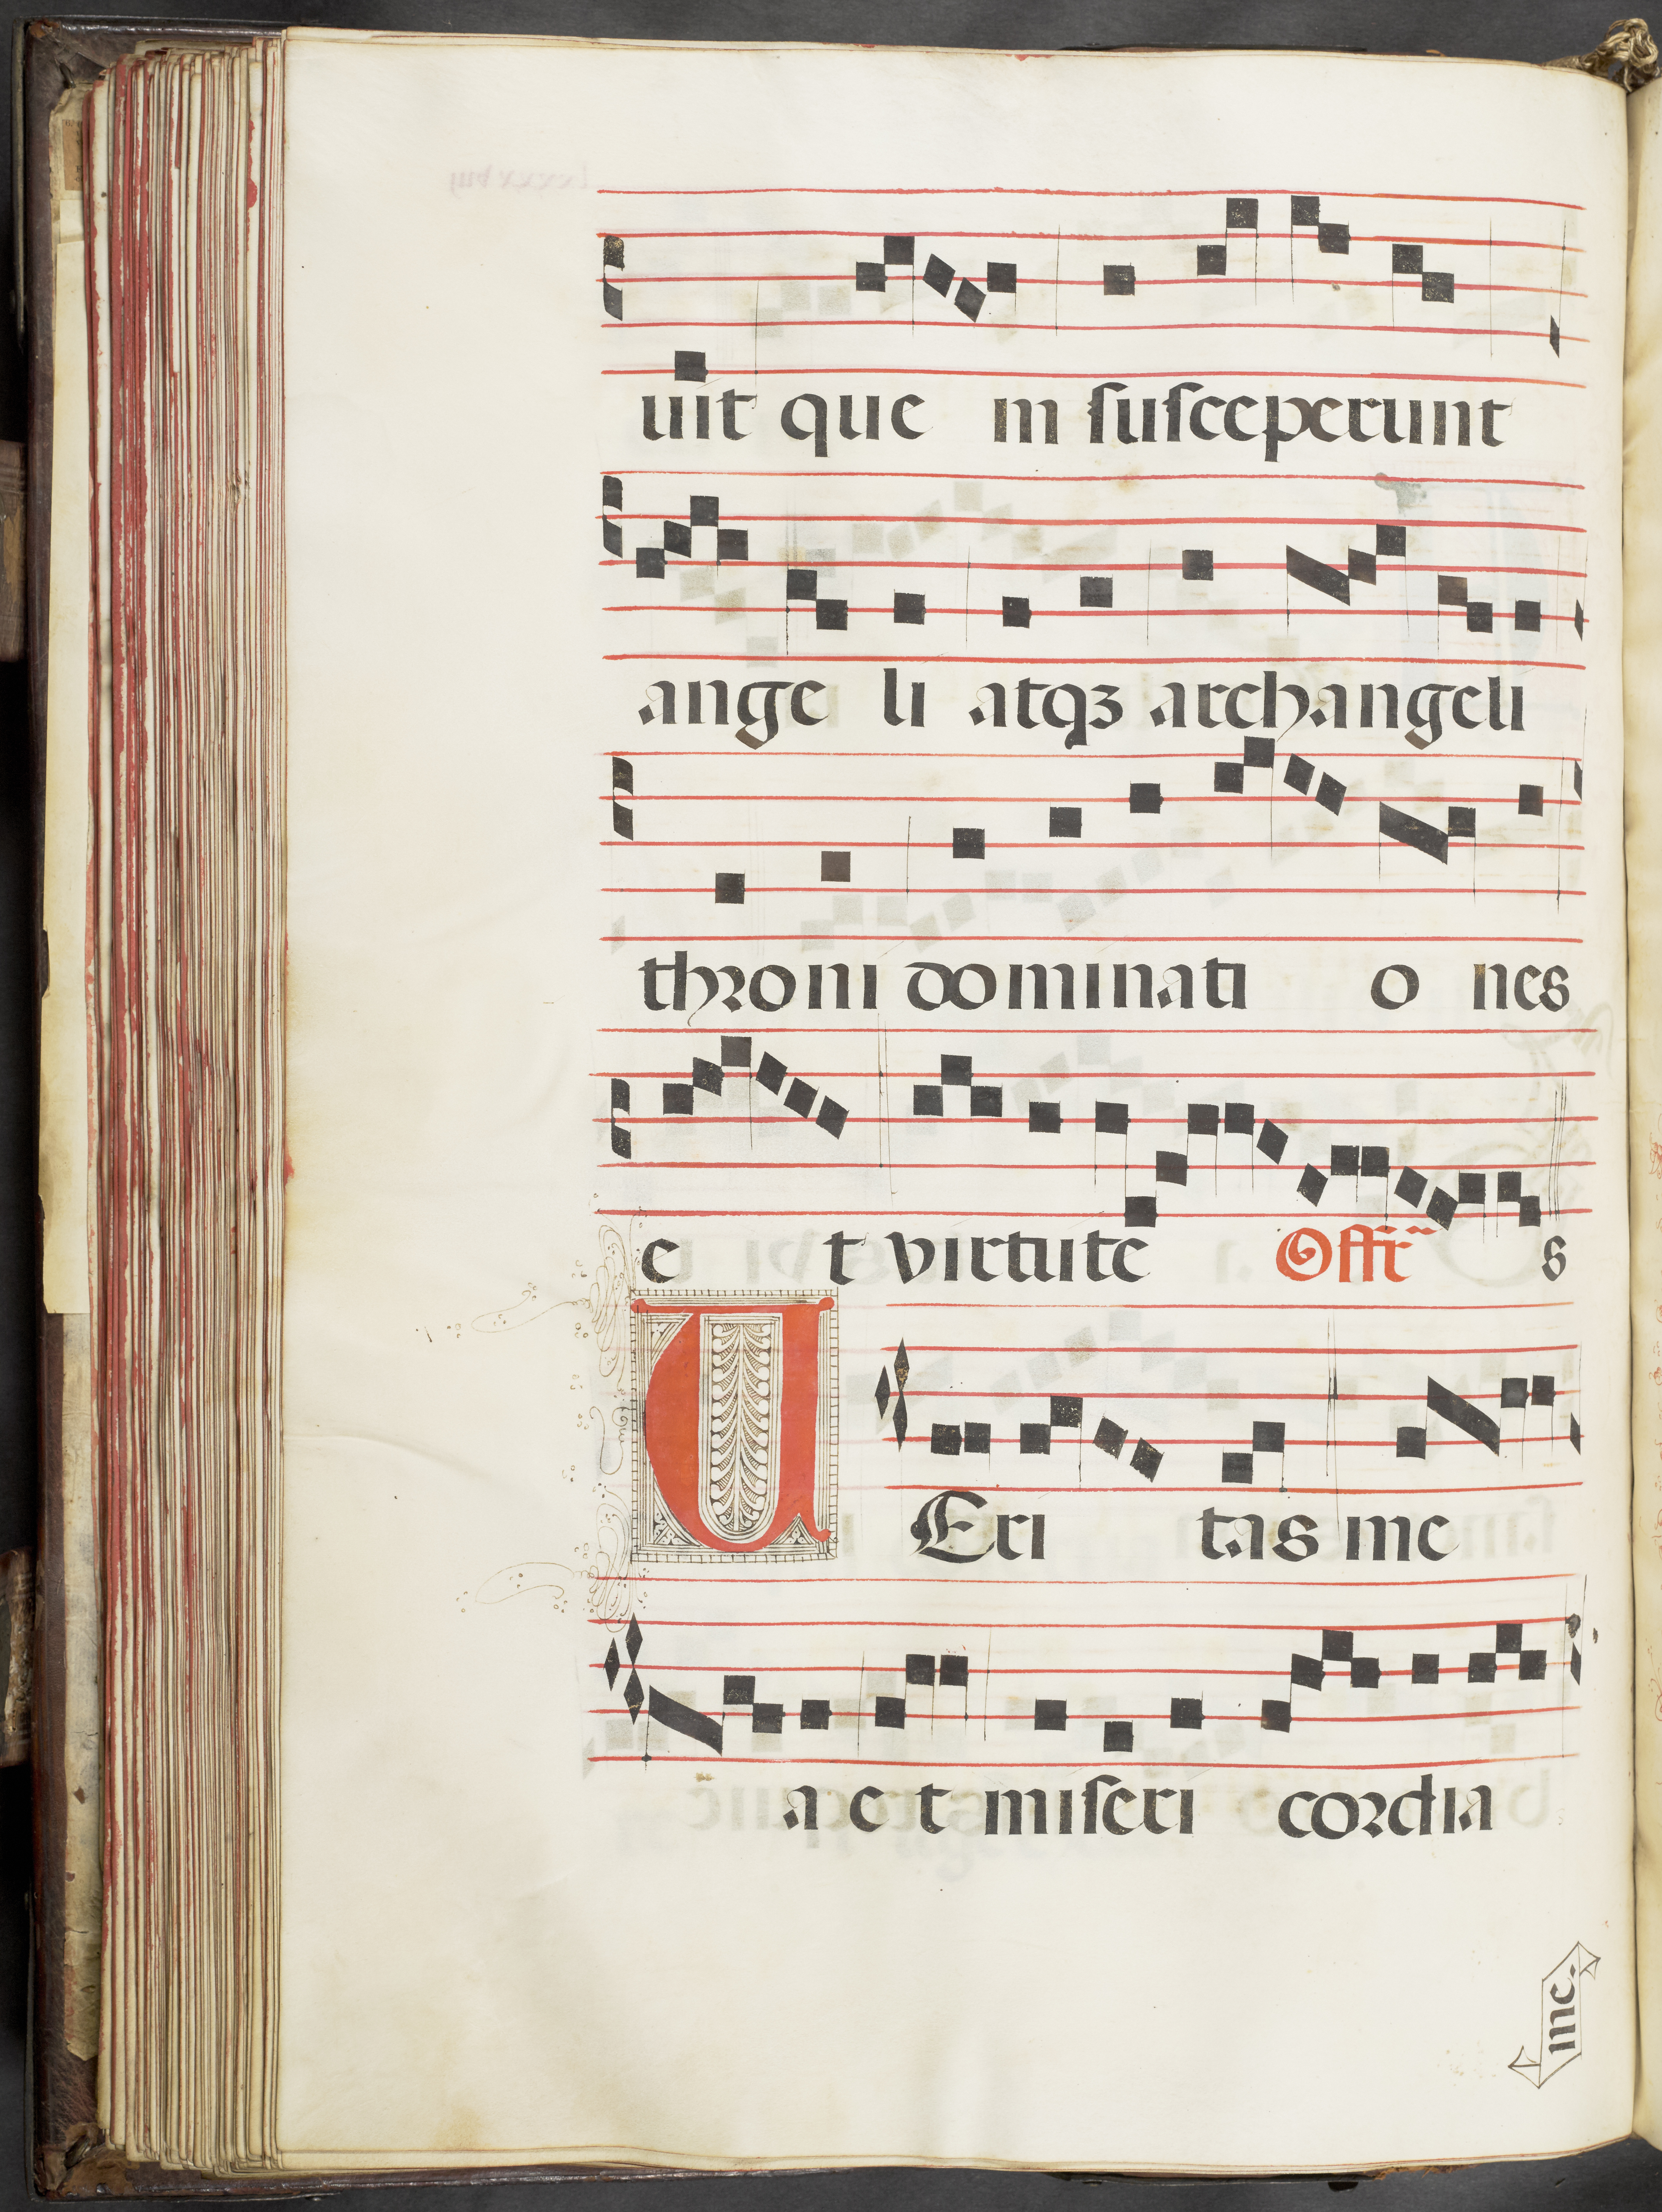 uit que in suſceperunt
ange li atqꝫ archangeli
throni dominati o nes
e t virtute Offr̃ s
U Eri tas me
a e t miſeri cordia
mea